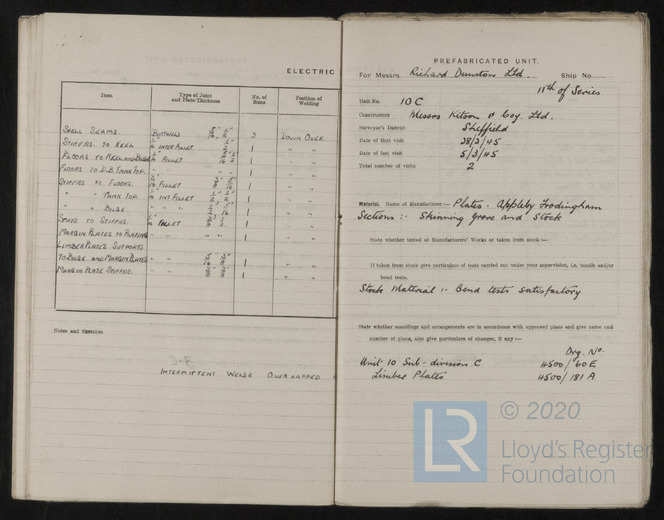 ELECTRIC
Item
Type of Joint and Plate Thickness
No. of Runs
Position of Welding
SHELL SEAMS. BUTTWELD 3 DOWN OVER.
STIFFRS. TO KEEL INTER FILLET 1 " "
FLOORS TO KEEL AND BILGE FILLET 1 " "
FLOORS TO D.B. TANK TOP. " 1 " "
STIFFRS TO FLOORS. FILLET 1 " "
" " TANK TOP. INT FILLET 1 " "
" " BILGE " " 1 " "
STAYS TO STIFFRS. FILLET 1 " "
MARGIN PLATES TO " " 1 " "
LIMBER PLATES SUPPORTS
TO BILGE AND MARGIN PLATES " " 1 " "
MARGIN PLATE STIFFRS. " 1 " "
Notes and Sketches
INTERMITTENT WELDS OVERLAPPED
PREFABRICATED UNIT.
For Messrs. Richard Dunston Ltd. Ship No.
11th of Series
Unit No. 10 C
Constructors Messrs Kitson & Coy. Ltd.
Surveyor's District Sheffield
Date of first visit 28/2/45
Date of last visit 5/3/45
Total number of visits 2
Material. Name of Manufacturer:— Plates - Appleby Frodingham
Sections :- Skinning grove and Stock
State whether tested at Manufacturers' Works or taken from stock:—
If taken from stock give particulars of tests carried out under your supervision, i.e. tensile and/or
bend tests.
Stock Material :- Bend tests satisfactory
State whether scantlings and arrangements are in accordance with approved plans and give name and
number of plans, also give particulars of changes, if any:—
Drg. No.
Unit 10 Sub-division C 4500/60 E
Limber Plates 4500/181 A
© 2020
LR
Lloyd's Register
Foundation